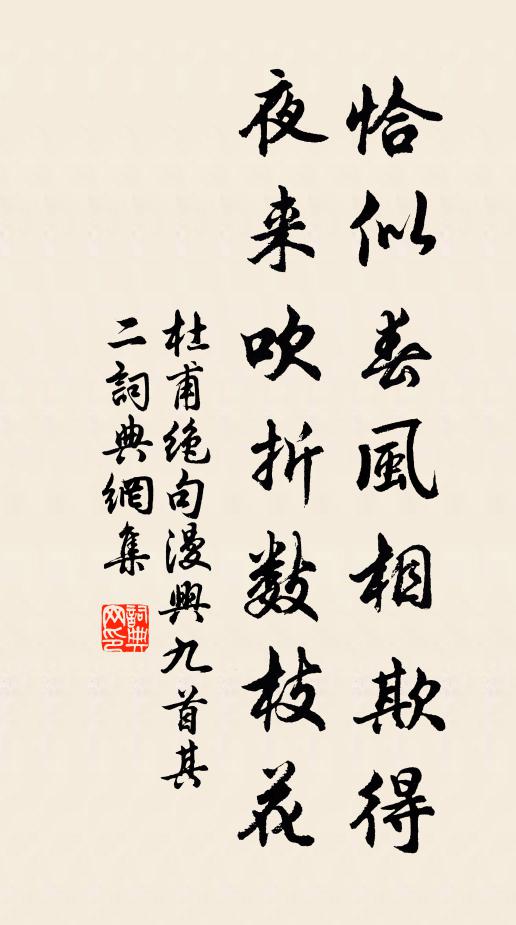 恰似春風相欺得
夜来吹折数枝花
杜甫绝句漫興九首其
二詞典網集
詞典
网印